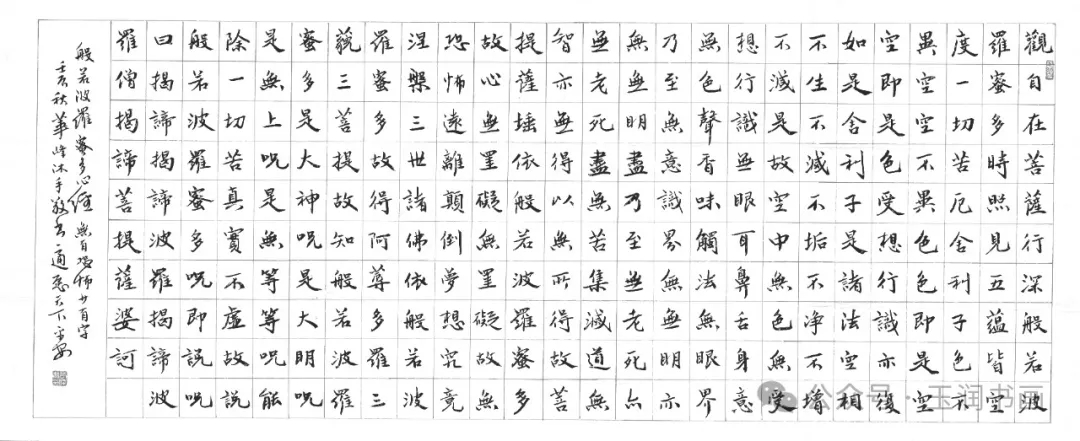 觀自在菩薩行深般若波
羅蜜多時照見五蘊皆空
度一切苦厄舍利子色不
異空空不異色色即是空
空即是色受想行識亦復
如是舍利子是諸法空相
不生不滅不垢不淨不增
不減是故空中無色無受
想行識無眼耳鼻舌身意
無色聲香味觸法無眼界
乃至無意識界無無明亦
無無明盡乃至無老死亦
無老死盡無苦集滅道無
智亦無得以無所得故菩
提薩埵依般若波羅蜜多
故心無罣礙無罣礙故無
恐怖遠離顛倒夢想究竟
涅槃三世諸佛依般若波
羅蜜多故得阿尊多羅三
藐三菩提故知般若波羅
蜜多是大神呪是大明呪
是無上呪是無等等呪能
除一切苦真實不虛故說
般若波羅蜜多呪即說呪
曰揭諦揭諦波羅揭諦波
羅僧揭諦菩提薩婆訶
般若波羅蜜多心經
秋華峰沐手敬書 天下平安
公众号 · 玉润书画